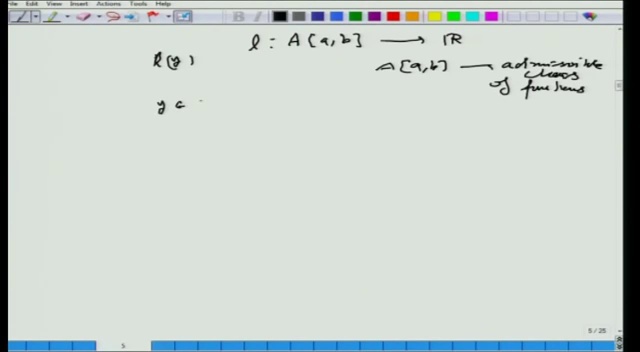 File Edit View Insert Actions Tools Help
l : A[a,b] ⟶ ℝ
l(y)
A[a,b] — admissible
class
of functions
y ∈
5 / 25
5